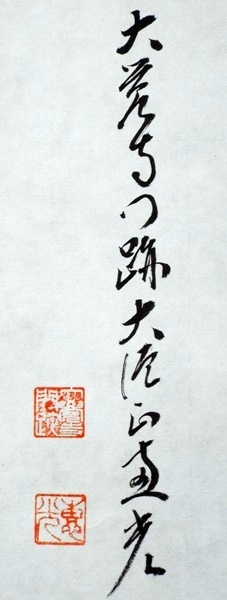 大覚寺門跡大僧正恵光